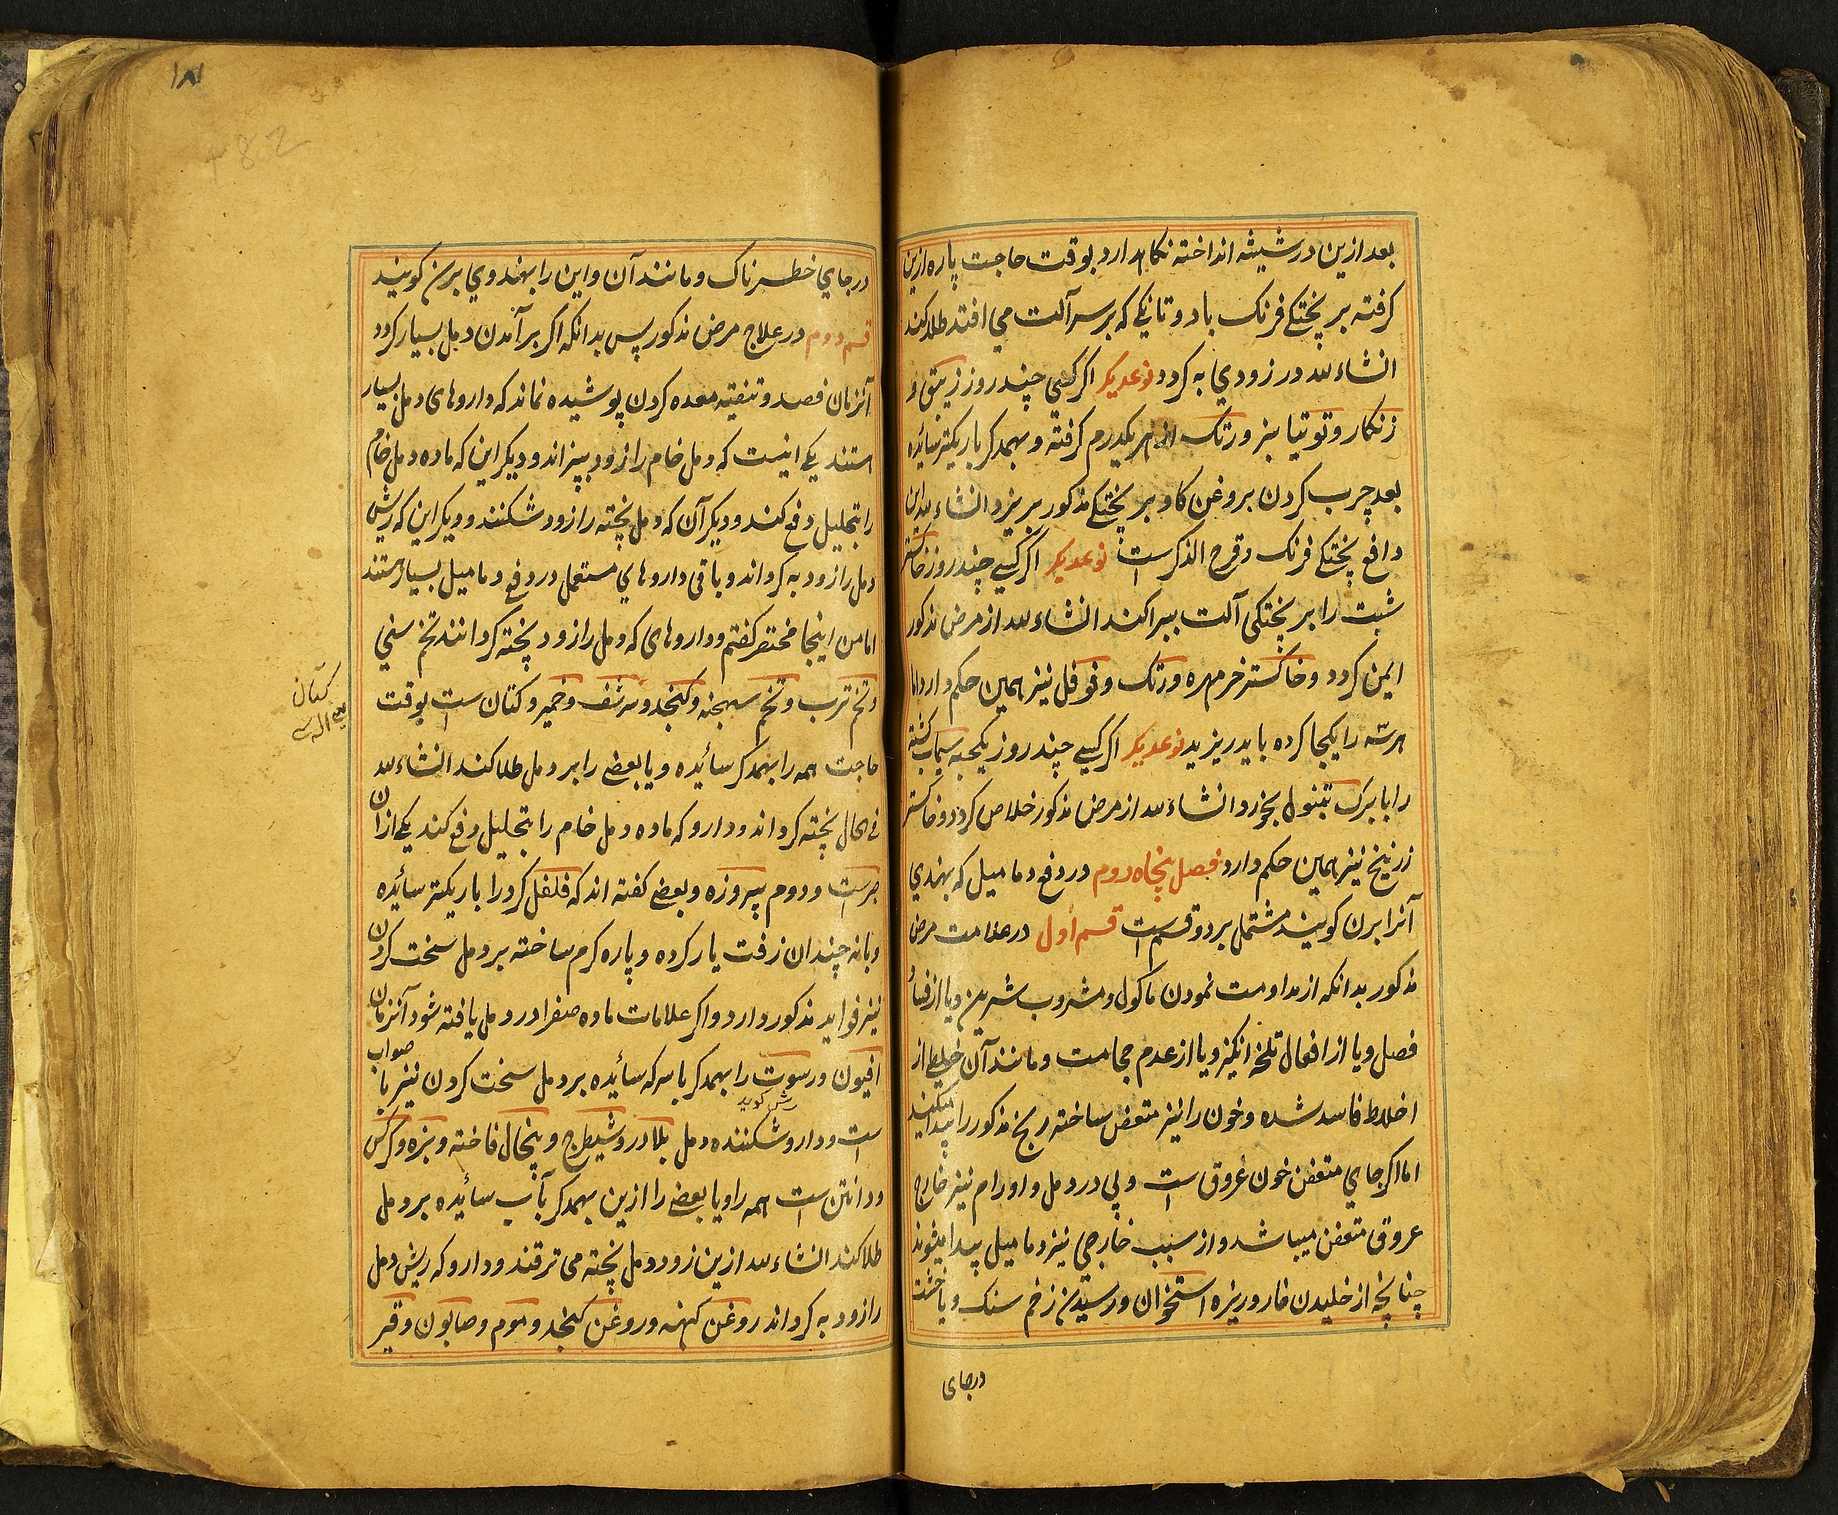 بعد ازین در شیشه انداخته نکاہدارد بوقت حاجت پاره ازین
کرفته بر پختکے فرنک باد و تانیکے که بر سر آلت می افتد طلا کند
انشاء لله در زودی به کردد نوعدیکر اکر کسی چند روز زیبق و
زنکار و توتیا سبز و رتک از ہر یکدرم کرفته و بهمدکر باریکتر سائیده
بعد چرب کردن بروغن کاو بر پختکے مذکور بریزد انشاء لله این
دافع پختکے فرنک و قروح الذکر است نوعدیکر اکر کسے چند روز خاکستر
شبت را بر پختکی آلت بپراکند انشاء لله از مرض مذکور
ایمن کردد و خاکستر خرمهره و رتک و فوفل نیز ہمین حکم دارد اما
ہر سّه را یکجا کرده باید ریزید نوعدیکر اکر کسے چند روز یکحبه سیماب کشته
را با برک تنبول بخورد انشاء لله از مرض مذکور خلاص کردد و خاکستر
زرنیخ نیز ہمین حکم دارد فصل پنجاه دوم در دفع دمامیل که بهندی
آنرا برن کویند مشتمل بر دو قسم است قسم اول در علامت مرض
مذکور بدانکه از مداومت نمودن ماکول و مشروب شیرین و یا از فساد
فصل و یا از افعال تلخه انکیز و یا از عدم حجامت و مانند آن خلطے از
اخلاط فاسد شده و خون را نیز متعفن ساخته رنج مذکور را پیدا میکند
اما اکر جای متعفن خون عروق است ولی در دمل و اورام نیز خارج
عروق متعفن میباشد و از سبب خارجی نیز دمامیل پیدا میشوند
چنانچه از خلیدن خار و ریزه استخوان و رسیدن زخم سنک و یا خشت
درجای
۱۸۱
482
در جای خطرناک و مانند آن و این را بهندوی برن کویند
قسم دوم در علاج مرض مذکور پس بدانکه اکر برآمدن دمل بسیار کردد
آنزمان فصد و تنقیه معده کردن پوشیده نماند که داروهای دمل بسیار
استند یکے اینست که دمل خام را زود بپزاند و دیکر این که ماده دمل خام
را بتحلیل دفع کند و دیکر آن که دمل پخته را زود شکنند و دیکر این که ریش
دمل را زود به کرداند و باقی داروهای مستعمل در دفع دمامیل بسیار ہستند
اما من اینجا مختصر کفتم و داروهای که دمل را زود پخته کردانند تخم سنی
و تخم ترب و تخم سهجنه و کنجد و سرشف و خمیر و کتان است بوقت
کتان
یعنے السے
حاجت ہمه را بهمدکر سائیده و یا بعضے را بر دمل طلا کند انشاء لله
فے الحال پخته کرداند و دارو که ماده دمل خام را بتحلیل دفع کند یکے ازان
صبر است و دوم پیروزه و بعضے کفته اند که فلفل کرد را باریکتر سائیده
و بانه چندان زفت یار کرده و پاره کرم ساخته بر دمل سخت کردن
نیز فواید مذکور دارد و اکر علامات ماده صفرا در دمل یافته شود آنزمان
افیون و رسوت را بهمدکر با سرکه سائیده بر دمل سخت کردن نیز با صواب
است و دارو شکننده دمل بلادر و شیطرج و پنجال فاخته و بزه و کرکس
و دانتن است ہمه را و یا بعضے را ازین بهمدکر بآب سائیده بر دمل
طلا کند انشاء لله ازین زود دمل پخته می ترقند و دارو که ریش دمل
را زود به کرداند روغن کهنه و روغن کنجد و موم و صابون و قیر